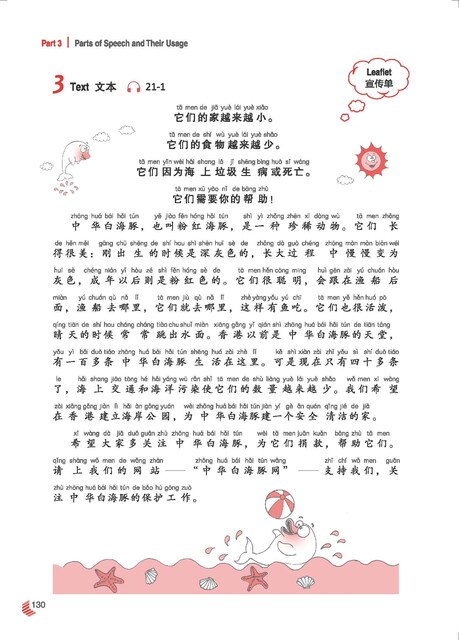 Part 3 | Parts of Speech and Their Usage
3 Text 文本 21-1
Leaflet
宣传单
tā men de jiā yuè lái yuè xiǎo
它们的家越来越小。
tā men de shí wù yuè lái yuè shǎo
它们的食物越来越少。
tā men yīn wèi hǎi shang lā jī shēng bìng huò sǐ wáng
它们因为海上垃圾生病或死亡。
tā men xū yào nǐ de bāng zhù
它们需要你的帮助！
zhōng huá bái hǎi tún yě jiào fěn hóng hǎi tún shì yì zhǒng zhēn xī dòng wù tā men zhǎng
中华白海豚，也叫粉红海豚，是一种珍稀动物。它们长
de hěn měi gāng chū shēng de shí hou shì shēn huī sè de zhǎng dà guò chéng zhōng màn màn biàn wéi
得很美：刚出生的时候是深灰色的，长大过程中慢慢变为
huī sè chéng nián yǐ hòu zé shì fěn hóng sè de tā men hěn cōng míng huì gēn zài yú chuán hòu
灰色，成年以后则是粉红色的。它们很聪明，会跟在渔船后
miàn yú chuán qù nǎ lǐ tā men jiù qù nǎ lǐ zhè yàng yǒu yú chī tā men yě hěn huó pō
面，渔船去哪里，它们就去哪里，这样有鱼吃。它们也很活泼，
qíng tiān de shí hou cháng cháng tiào chū shuǐ miàn xiāng gǎng yǐ qián shì zhōng huá bái hǎi tún de tiān táng
晴天的时候常常跳出水面。香港以前是中华白海豚的天堂，
yǒu yì bǎi duō tiáo zhōng huá bái hǎi tún shēng huó zài zhè lǐ kě shì xiàn zài zhǐ yǒu sì shí duō tiáo
有一百多条中华白海豚生活在这里。可是现在只有四十多条
le hǎi shang jiāo tōng hé hǎi yáng wū rǎn shǐ tā men de shù liàng yuè lái yuè shǎo wǒ men xī wàng
了，海上交通和海洋污染使它们的数量越来越少。我们希望
zài xiāng gǎng jiàn lì hǎi àn gōng yuán wèi zhōng huá bái hǎi tún jiàn yí gè ān quán qīng jié de jiā
在香港建立海岸公园，为中华白海豚建一个安全清洁的家。
xī wàng dà jiā duō guān zhù zhōng huá bái hǎi tún wèi tā men juān kuǎn bāng zhù tā men
希望大家多关注中华白海豚，为它们捐款，帮助它们。
qǐng shàng wǒ men de wǎng zhàn zhōng huá bái hǎi tún wǎng zhī chí wǒ men guān
请上我们的网站——“中华白海豚网”——支持我们，关
zhù zhōng huá bái hǎi tún de bǎo hù gōng zuò
注中华白海豚的保护工作。
130